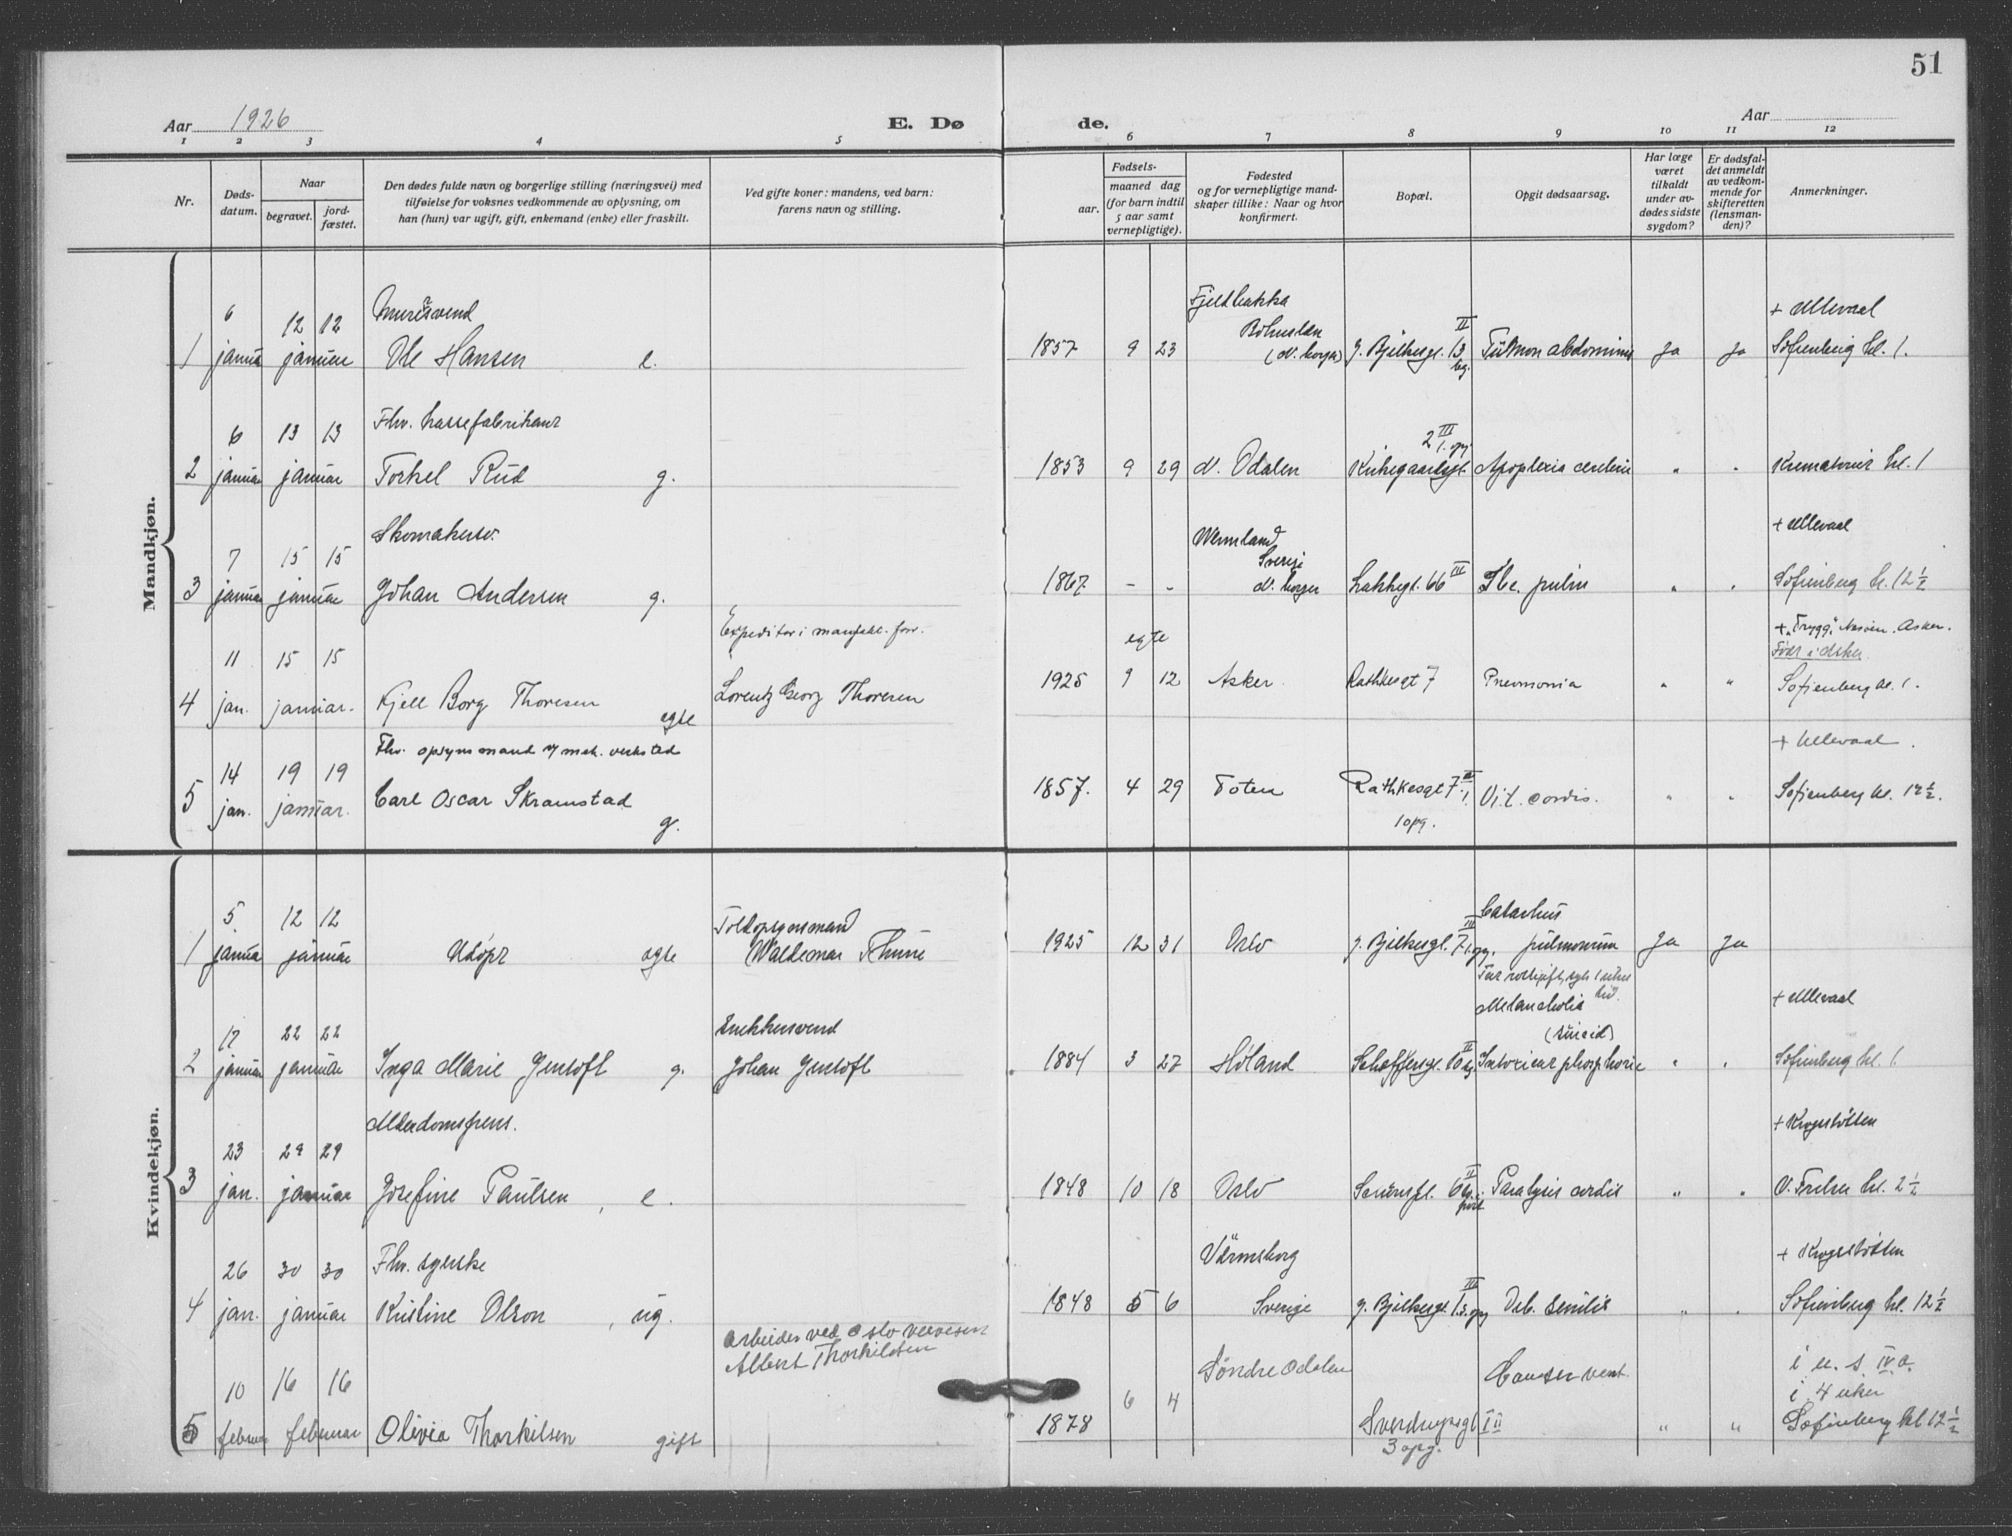 51
Aar 1926
E. Dø
de.
Aar
1 2 3 4 5 6 7 8 9 10 11 12
Nr.
Døds-
datum.
Naar
begravet.
jord-
fæstet.
Den dødes fulde navn og borgerlige stilling (næringsvei) med
tilføielse for voksnes vedkommende av oplysning, om
han (hun) var ugift, gift, enkemand (enke) eller fraskilt.
Ved gifte koner: mandens, ved barn:
farens navn og stilling.
Fødsels-
aar.
maaned dag
(for barn indtil
5 aar samt
vernepligtige).
Fødested
og for vernepligtige mand-
skaper tillike: Naar og hvor
konfirmert.
Bopæl.
Opgit dødsaarsag.
Har læge
været
tilkaldt
under av-
dødes sidste
sygdom?
Er dødsfal-
det anmeldt
av vedkom-
mende for
skifteretten
(lensman-
den)?
Anmerkninger.
Mandkjøn.
6 12 12 Murersvend
1 januar januar Ole Hansen e.
Bohuslen
1857 9 23 (N. borger) J. Bjelkesgt. 13 II Ja Ja
+ Ullevaal
Sofienberg kl. 1.
6 13 13 Fhv.
2 januar januar Torkel Rud g.
1853 9 29 N. Odalen Apoplexia cerebri " " Krematoriet kl. 1
7 15 15 Skomakersv.
3 januar januar Johan Andersen g.
Wermland
Sverige
1867 - - N. borger Lakkegt. 66 III Tbc. pulm " "
+ Ullevaal
Sofienberg kl. 12 ½
11 15 15
4 jan. januar. Kjell Borg Thoresen egte
Expeditør i manufakt. forr.
Lorentz Georg Thoresen
egte
1925 9 12 Asker. Rathkesgt 7 Pneumonia " "
+ "Trygg", Asker.
Født i Asker
Sofienberg kl. 1.
14 19 19 Fhv. opsynsmand v/ mek. verksted
5 jan. januar. Carl Oscar Skramstad g.
1857. 4 29 Toten Rathkesgt 7 Vit. cordis. " "
1 opg.
+ Ullevaal.
Sofienberg kl. 12 ½.
Kvindekjøn.
5 12 12
1 januar januar Udøpt egte
Toldopsynsmand
Waldemar Thune
1925 12 31 Oslo J. Bjelkesgt. 7 III Catarhus
pulmonum Ja Ja
17 22 22
2 januar januar Inga Marie Jensoft g.
Snekkersvend
Johan Jensoft
Melancholia
(suicid)
1884 3 27 Høland Schoffersgt. 10 II " "
+ Ullevaal
Sofienberg kl. 1
23 29 29 Alderdomspens.
3 jan. januar Josefine Paulsen, e.
1848 10 18 Oslo Paralysis cordis " "
+ Krogstøtten
V. Frelser kl. 2 ½
26 30 30 Fhv. syerske
4 jan. januar Kristine Olson, ug.
Värmsborg
1848 5 6 Sverige J. Bjelkesgt. Deb. senilis " "
+ Krogstøtten
Sofienberg kl. 12 ½
10 16 16
5 februar februar Olivia Thorkilsen gift
arbeider ved Oslo veivesen
Albert Thorkildsen
1878 6 4 Søndre Odalen Sverdrupsgt 1 II
3 opg.
Cancer vent. " "
i u. s. IV a.
i 4 uker
Sofienberg kl 12 ½